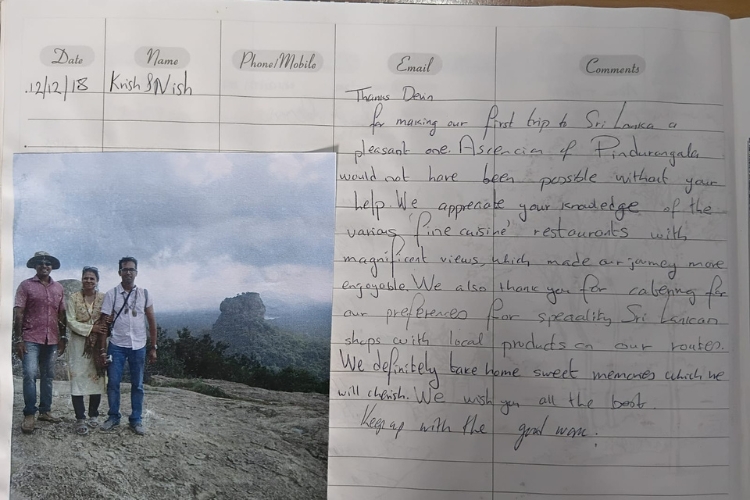 Date Name Phone/Mobile Email Comments
12/12/18 Krish & Nish
Thanks Devin
for making our first trip to Sri Lanka a
pleasant one. Ascencion of Pindurangala
would not have been possible without your
help. We appreciate your knowledge of the
various 'fine cuisine' restaurants with
magnificent views, which made our journey more
engoyable. We also thank you for catering for
our preferences for speciality Sri Lankan
shops with local products on our routes.
We definitely take home sweet memories which we
will cherish. We wish you all the best.
Keep up with the good work.